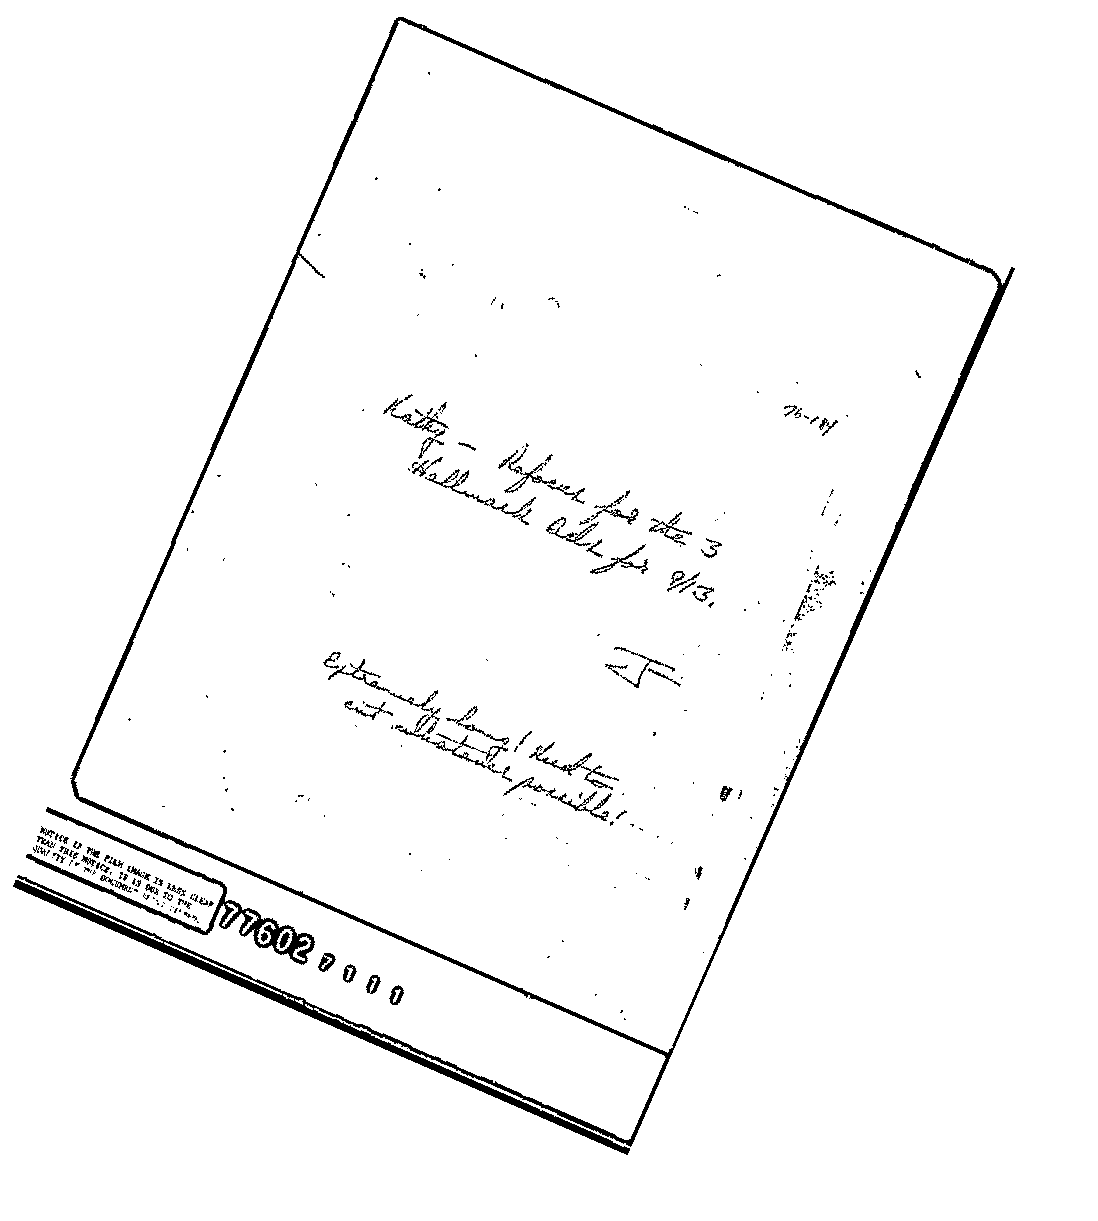 76-184
Kathy - for the 3
Hallmark ads for 9/13.
J
Extremely long! Need to
cut wherever possible!
NOTICE IF THE FILM IMAGE IS LESS CLEAR
THAN THIS NOTICE, IT IS DUE TO THE
QUALITY OF THE DOCUMENT
776027111